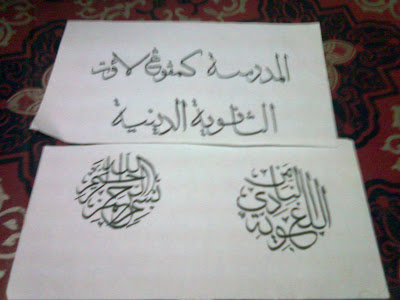 المدرسة كمفوڠ لاؤت
الثانوية الدينية
من النادي اللغوية
بسم الله الرحمن الرحيم